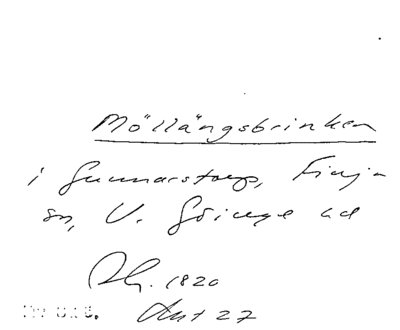 Möllängsbrinken
i Gunnarstorp, Finja
sn, V. Göinge hd
1820
Akt 27